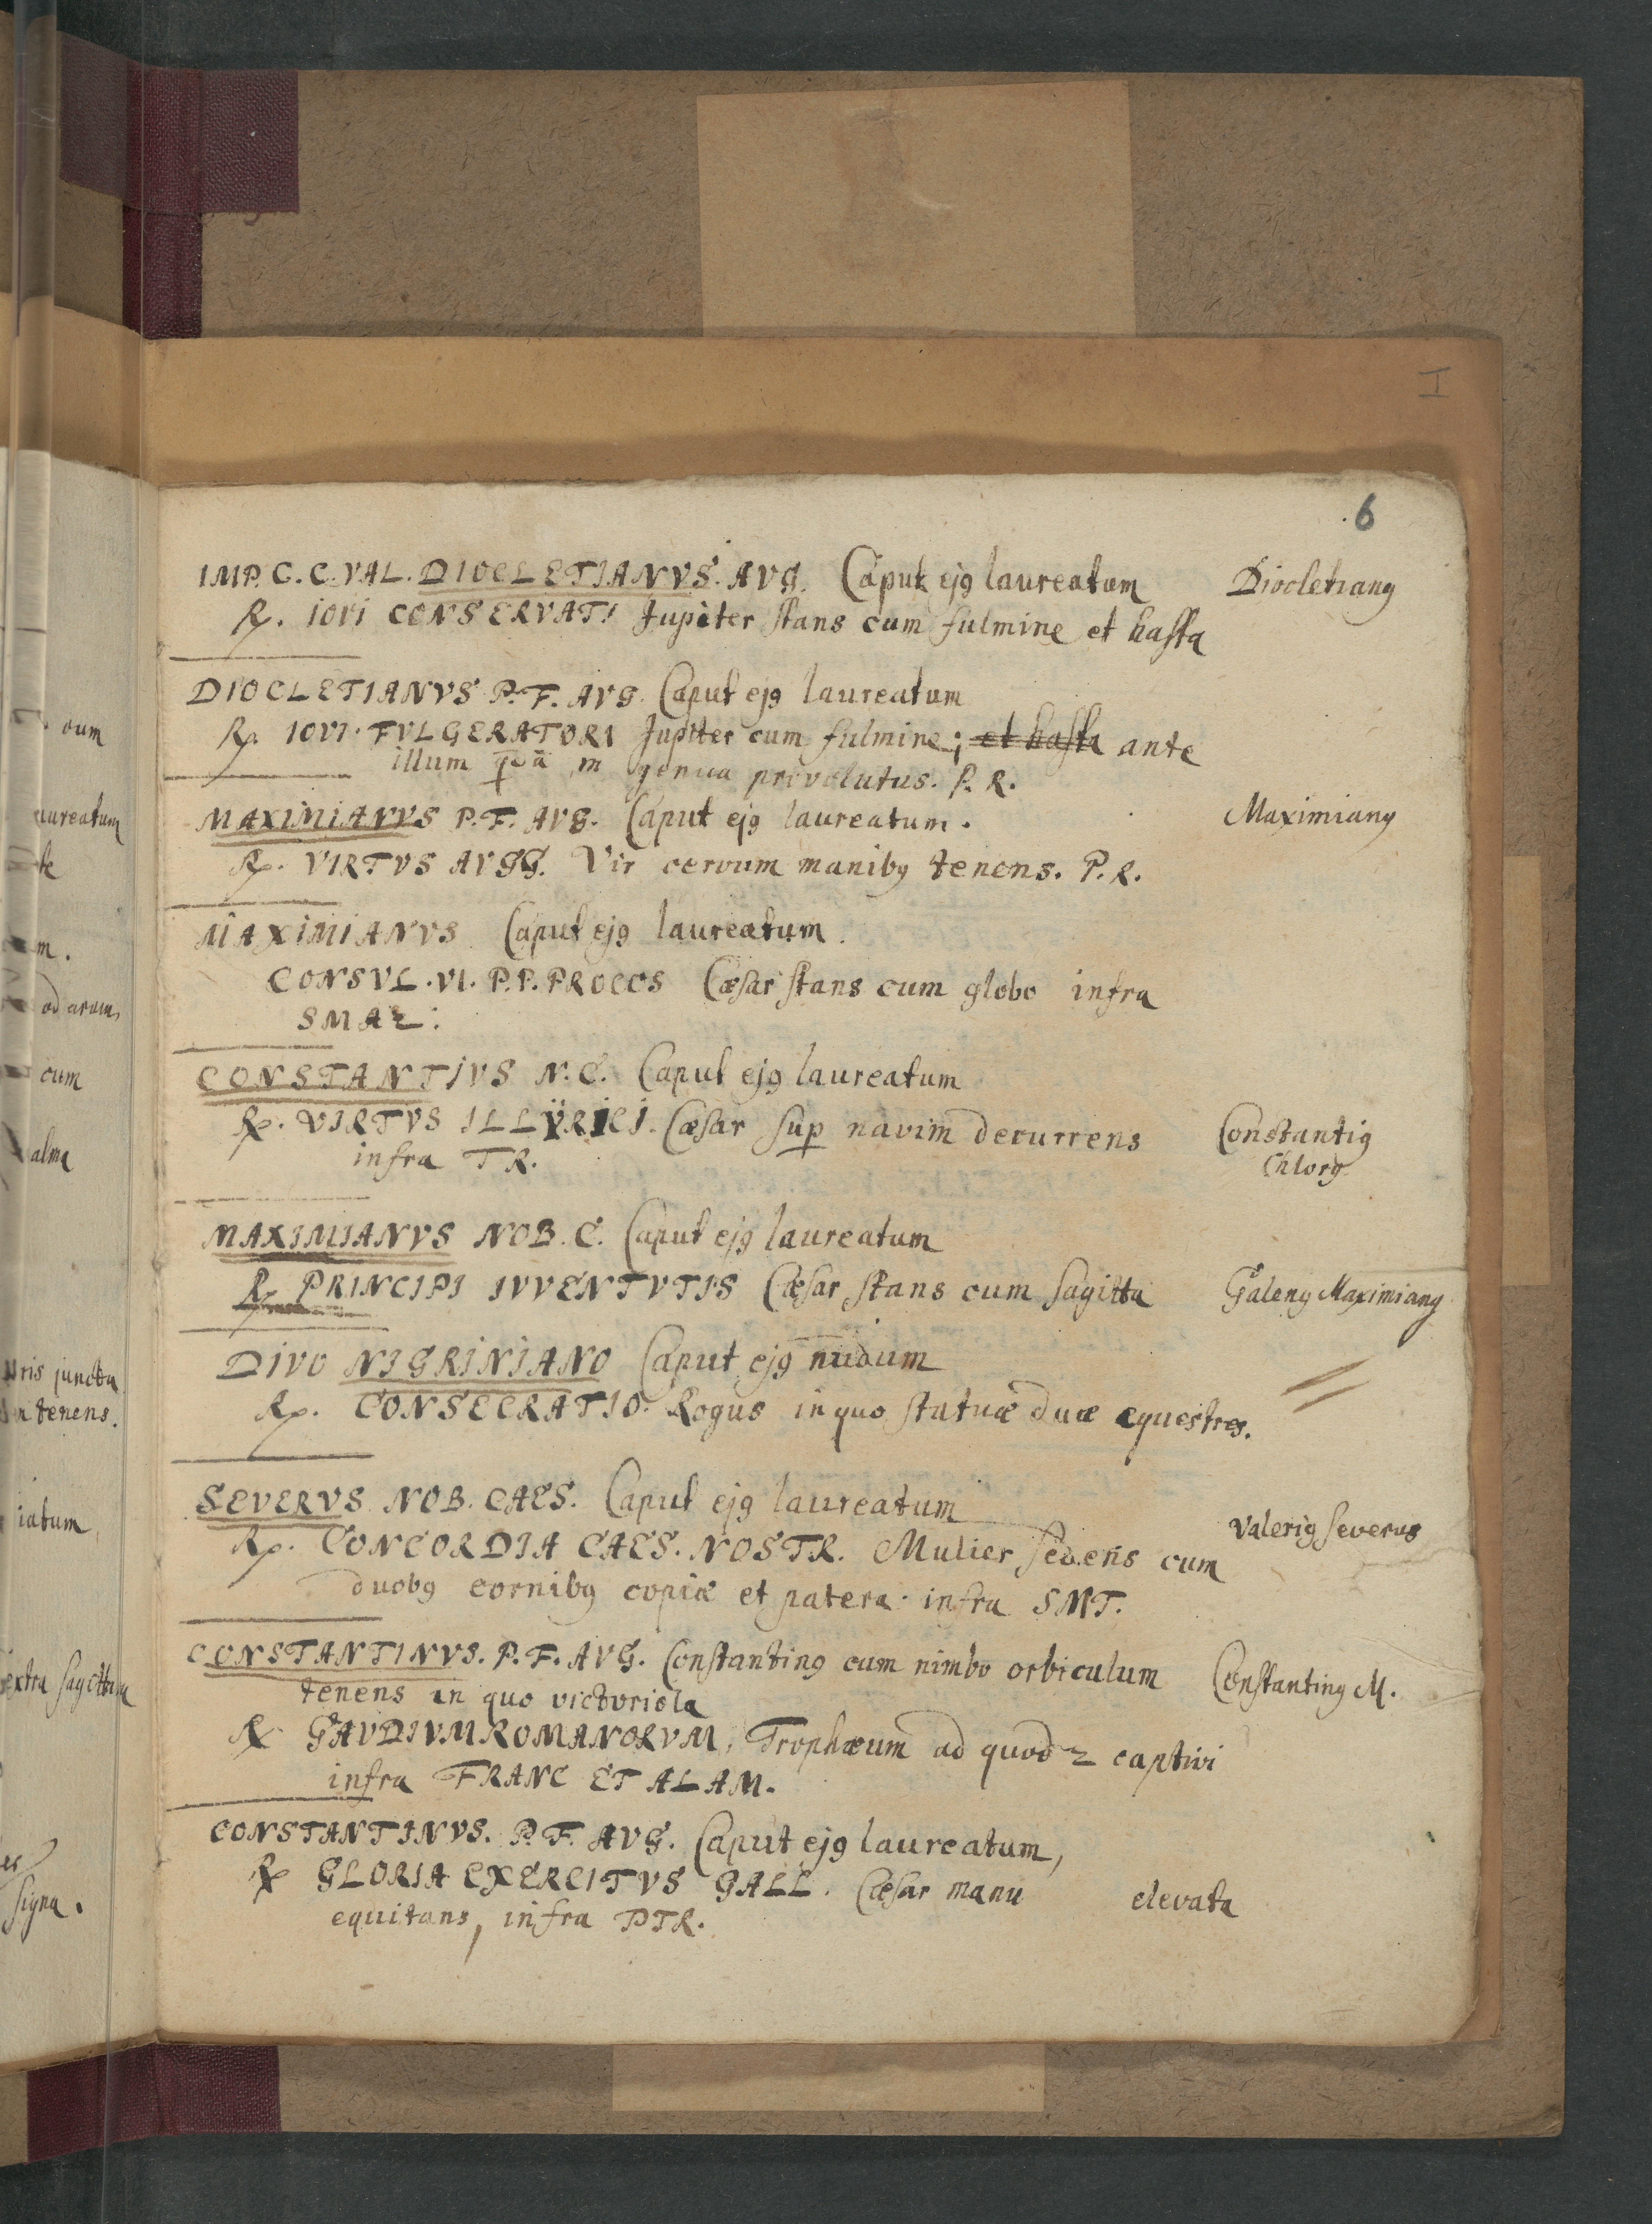 I
.6
IMP. C. C. VAL. DIOCLETIANVS. AVG. Caput ejꝰ laureatum Diocletianꝰ
℞. IOVI CONSERVATI Jupiter stans cum fulmine et hasta
DIOCLETIANVS P.F. AVG. Caput ejꝰ laureatum
℞. IOVI. FVLGERATORI Jupiter cum fulmine; et hasta ante
illum in genua provolutus. P.R.
MAXIMIANVS P.F. AVG. Caput ejꝰ laureatum. Maximianꝰ
℞. VIRTVS AVGG. Vir cervum manibꝰ tenens. P.R.
MAXIMIANVS Caput ejꝰ laureatum.
CONSVL. VI. P.P. PROCOS Cæsar stans cum globo infra
SMAΣ:
CONSTANTIVS N.C. Caput ejꝰ laureatum
℞. VIRTVS ILLŸRICI. Cæsar sup navim decurrens Constantiꝰ
infra TR. Chlorꝰ
MAXIMIANVS NOB. C. Caput ejꝰ laureatum
℞ PRINCIPI IVVENTVTIS Cæsar stans cum sagitta Galenꝰ Maximianꝰ
DIVO NIGRINIANO Caput ejꝰ nudum
℞. CONSECRATIO. Rogus in quo statuæ duæ equestres.
SEVERVS NOB. CAES. Caput ejꝰ laureatum
℞. CONCORDIA CAES. NOSTR. Mulier sedens cum Valeriꝰ Severus
duobꝰ cornibꝰ copiæ et patera infra SMT.
CONSTANTINVS. P.F. AVG. Constantinꝰ cum nimbo orbiculum Constantinꝰ M.
tenens in quo victoriola
℞ GAVDIVM ROMANORVM, Trophæum ad quod 2 captivi
infra FRANC ET ALAM.
CONSTANTINVS. P.F. AVG. Caput ejꝰ laureatum,
℞ GLORIA EXERCITVS GALL. Cæsar manu elevata
equitans, infra PTR.
oum
aureatum
te
m.
ad aram,
cum
alma
ris juncta
tenens.
iatum
extra sagittam
signa.